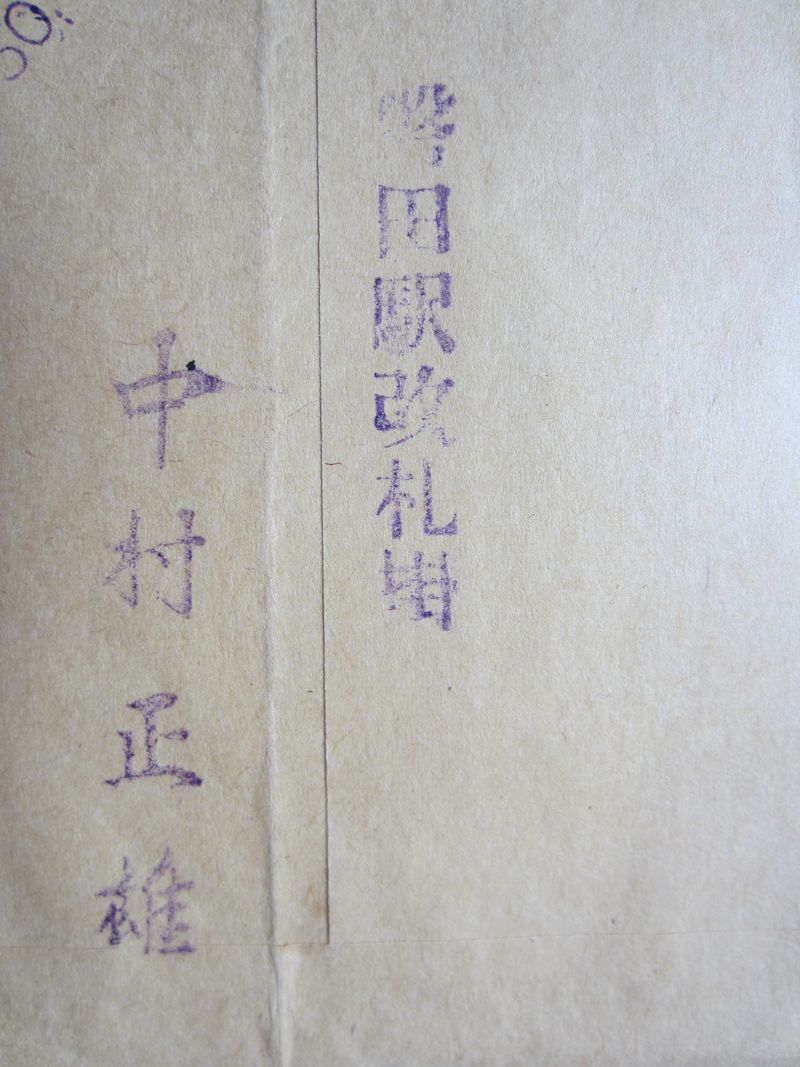 田駅改札掛
中村正雄